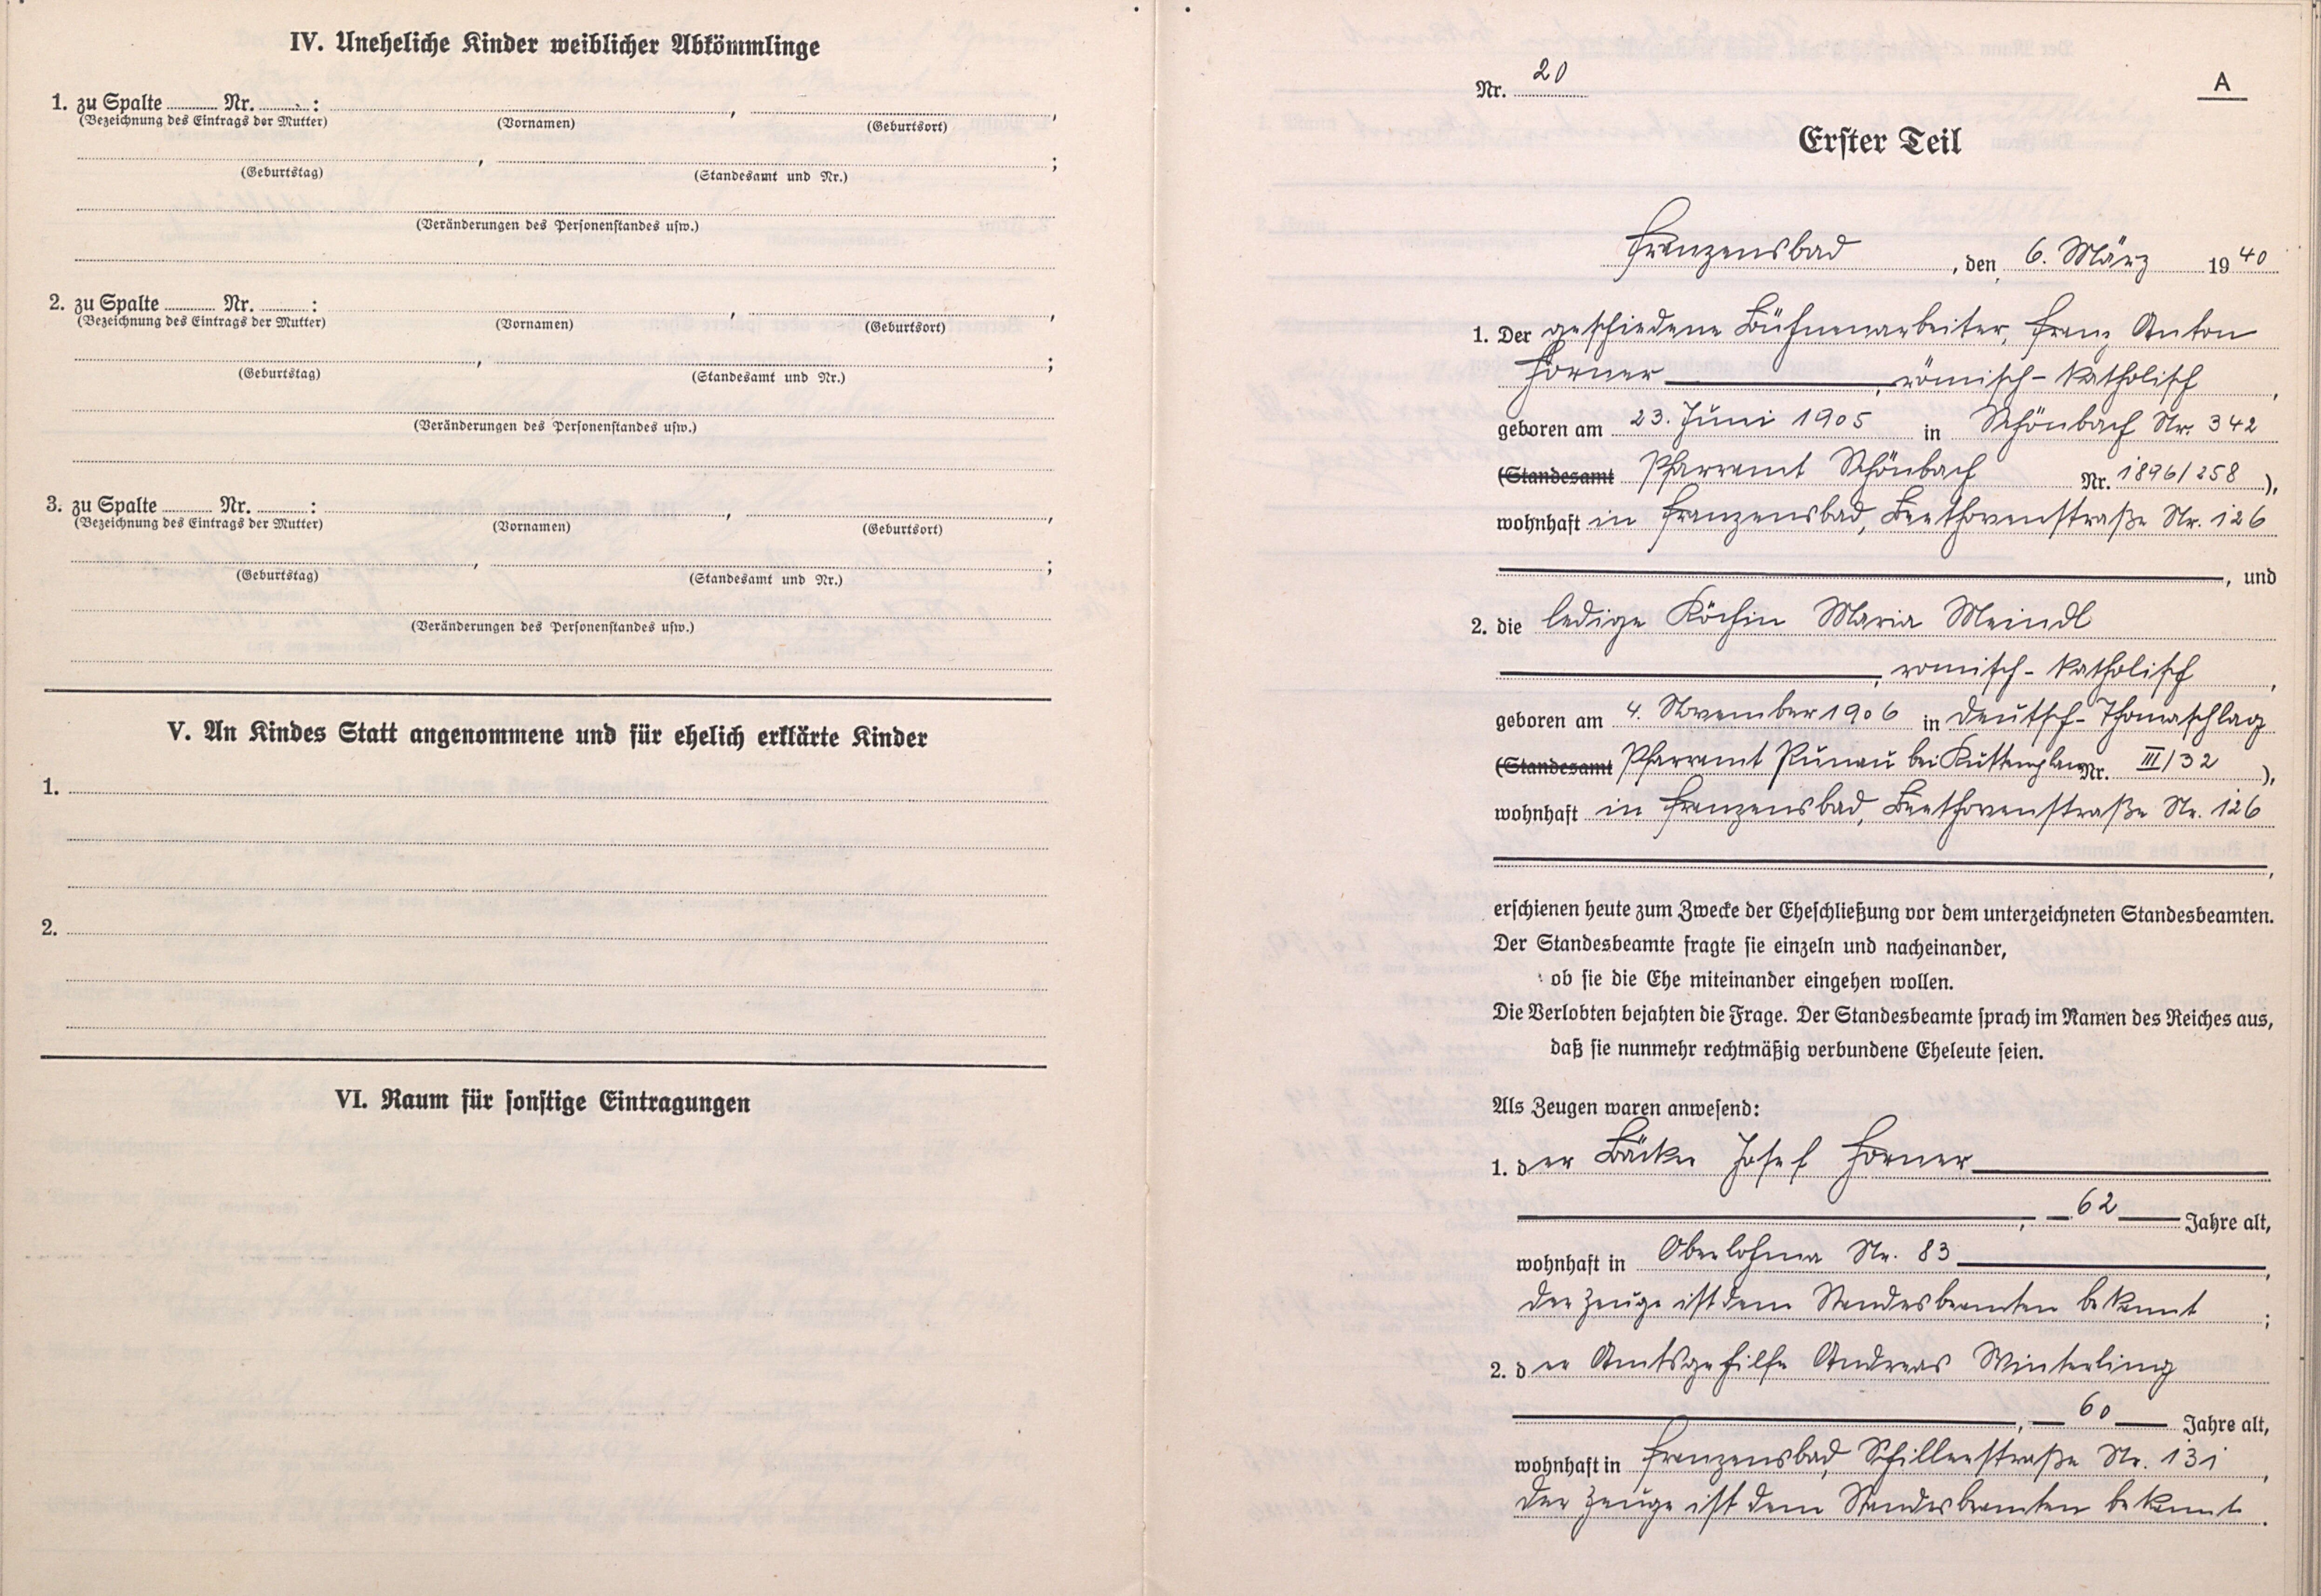 IV. Uneheliche Kinder weiblicher Abkömmlinge
1. zu Spalte ........ Nr. ........: ........, ........,
(Bezeichnung des Eintrags der Mutter) (Vornamen) (Geburtsort)
........, ........;
(Geburtstag) (Standesamt und Nr.)
(Veränderungen des Personenstandes usw.)
2. zu Spalte ........ Nr. ........: ........, ........,
(Bezeichnung des Eintrags der Mutter) (Vornamen) (Geburtsort)
........, ........;
(Geburtstag) (Standesamt und Nr.)
(Veränderungen des Personenstandes usw.)
3. zu Spalte ........ Nr. ........: ........, ........,
(Bezeichnung des Eintrags der Mutter) (Vornamen) (Geburtsort)
........, ........;
(Geburtstag) (Standesamt und Nr.)
(Veränderungen des Personenstandes usw.)
V. An Kindes Statt angenommene und für ehelich erklärte Kinder
1.
2.
VI. Raum für sonstige Eintragungen
Nr. 20
A
Erster Teil
Franzensbad, den 6. März 1940
1. Der geschiedene Bühnenarbeiter, Franz Anton
Hörner, römisch-katholisch,
geboren am 23. Juni 1905 in Schönbach Nr. 342
(Standesamt Pfarramt Schönbach Nr. 1896/258),
wohnhaft in Franzensbad, Beethovenstraße Nr. 126
, und
2. die ledige Köchin Maria Meindl
, römisch-katholisch,
geboren am 4. November 1906 in Deutsch-Thomaschlag
(Standesamt Pfarramt Punau bei Kuttenplan Nr. III/32),
wohnhaft in Franzensbad, Beethovenstraße Nr. 126
,
erschienen heute zum Zwecke der Eheschließung vor dem unterzeichneten Standesbeamten.
Der Standesbeamte fragte sie einzeln und nacheinander,
ob sie die Ehe miteinander eingehen wollen.
Die Verlobten bejahten die Frage. Der Standesbeamte sprach im Namen des Reiches aus,
daß sie nunmehr rechtmäßig verbundene Eheleute seien.
Als Zeugen waren anwesend:
1. der Bäcker Josef Hörner
, 62 Jahre alt,
wohnhaft in Oberlohma Nr. 83,
der Zeuge ist dem Standesbeamten bekannt;
2. der Amtsgehilfe Andreas Winterling
, 60 Jahre alt,
wohnhaft in Franzensbad, Schillerstraße Nr. 131,
der Zeuge ist dem Standesbeamten bekannt.